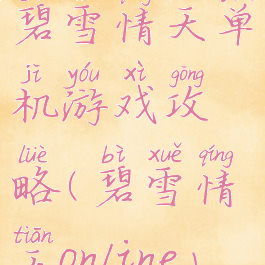 碧雪情天单
jī yóu xì gōng
机游戏攻
lüè bì xuě qíng
略(碧雪情
tiān
天online)